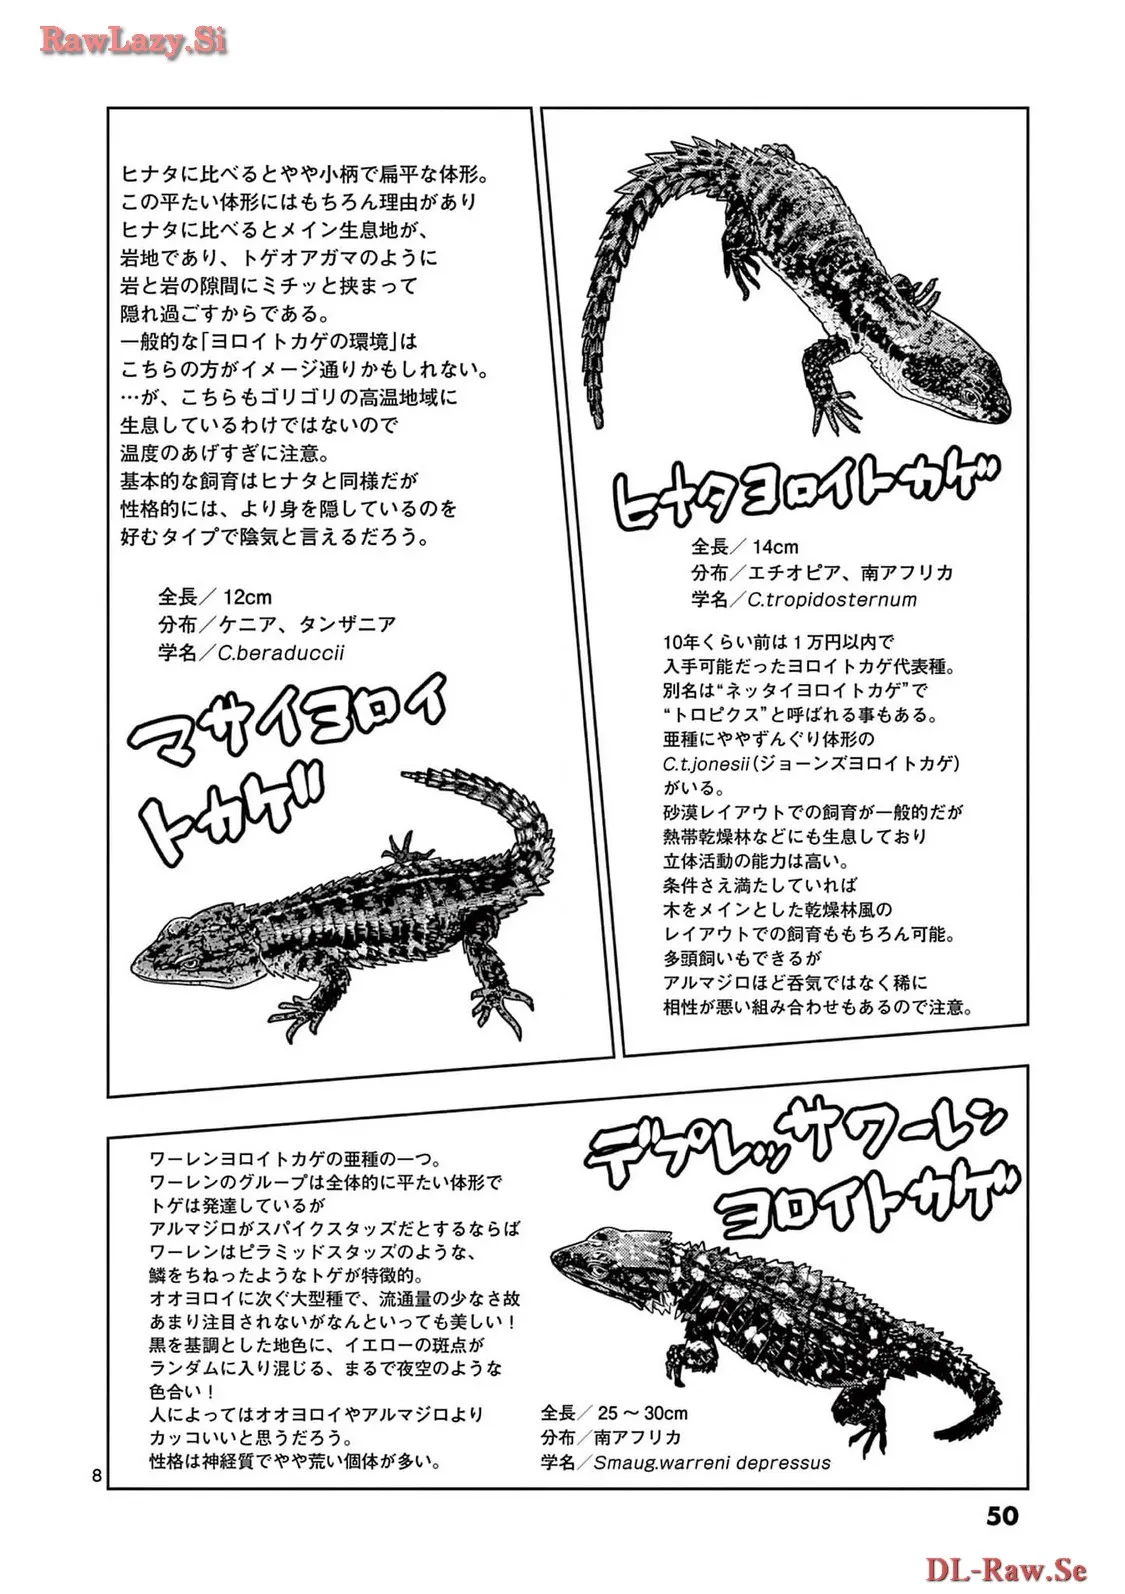 RawLazy.Si
ヒナタヨロイトカゲ
全長／14cm
分布／エチオピア、南アフリカ
学名／C.tropidosternum
10年くらい前は1万円以内で
入手可能だったヨロイトカゲ代表種。
別名は“ネッタイヨロイトカゲ”で
“トロピクス”と呼ばれる事もある。
亜種にややずんぐり体形の
C.t.jonesii(ジョーンズヨロイトカゲ)
がいる。
砂漠レイアウトでの飼育が一般的だが
熱帯乾燥林などにも生息しており
立体活動の能力は高い。
条件さえ満たしていれば
木をメインとした乾燥林風の
レイアウトでの飼育ももちろん可能。
多頭飼いもできるが
アルマジロほど呑気ではなく稀に
相性が悪い組み合わせもあるので注意。
ヒナタに比べるとやや小柄で扁平な体形。
この平たい体形にはもちろん理由があり
ヒナタに比べるとメイン生息地が、
岩地であり、トゲオアガマのように
岩と岩の隙間にミチッと挟まって
隠れ過ごすからである。
一般的な「ヨロイトカゲの環境」は
こちらの方がイメージ通りかもしれない。
…が、こちらもゴリゴリの高温地域に
生息しているわけではないので
温度のあげすぎに注意。
基本的な飼育はヒナタと同様だが
性格的には、より身を隠しているのを
好むタイプで陰気と言えるだろう。
全長／12cm
分布／ケニア、タンザニア
学名／C.beraduccii
マサイヨロイ
トカゲ
デプレッサワーレン
ヨロイトカゲ
ワーレンヨロイトカゲの亜種の一つ。
ワーレンのグループは全体的に平たい体形で
トゲは発達しているが
アルマジロがスパイクスタッズだとするならば
ワーレンはピラミッドスタッズのような、
鱗をちねったようなトゲが特徴的。
オオヨロイに次ぐ大型種で、流通量の少なさ故
あまり注目されないがなんといっても美しい！
黒を基調とした地色に、イエローの斑点が
ランダムに入り混じる、まるで夜空のような
色合い！
人によってはオオヨロイやアルマジロより
カッコいいと思うだろう。
性格は神経質でやや荒い個体が多い。
全長／25～30cm
分布／南アフリカ
学名／Smaug.warreni depressus
8
50
DL-Raw.Se